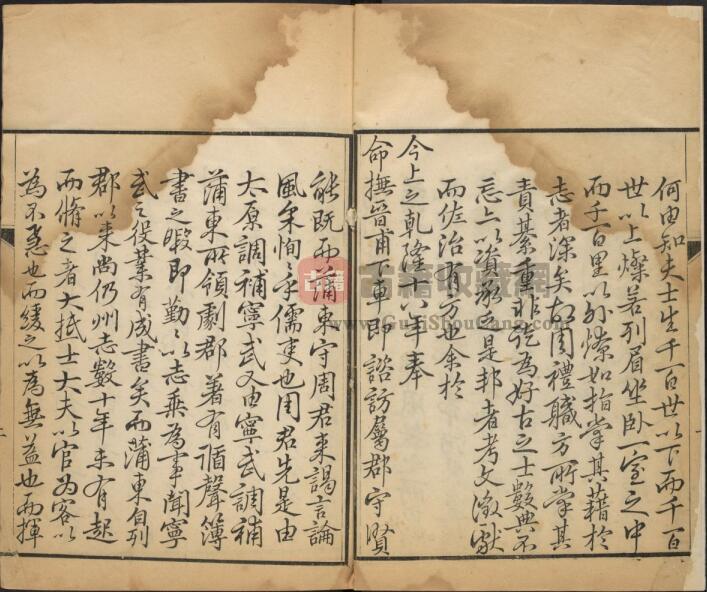 何由知夫士生千百世以下而千百
世以上燦若列眉坐臥一室之中
而千百里以外燎如指掌其藉於
志者深矣故周禮職方所掌其
責綦重非徒為好古之士數典不
忘上以資承區是邦者考文徵獻
而佐治有方也余於
今上之乾隆十八年奉
命撫晉甫下車即諮訪屬郡守賢
能既而蒲東守周君來謁言論
風采恂〻乎儒吏也周君先是由
太原調補寧武又由寧武調補
蒲東所領劇郡著有循聲簿
書之暇即勤〻以志乘為事聞寧
武之役業有成書矣而蒲東自列
郡以來尚仍州志數十年未有起
而脩之者大抵士大夫以官為客以
為不急也而緩之以為無益也而揮
古籍收藏網
www.GuJiShouCang.com